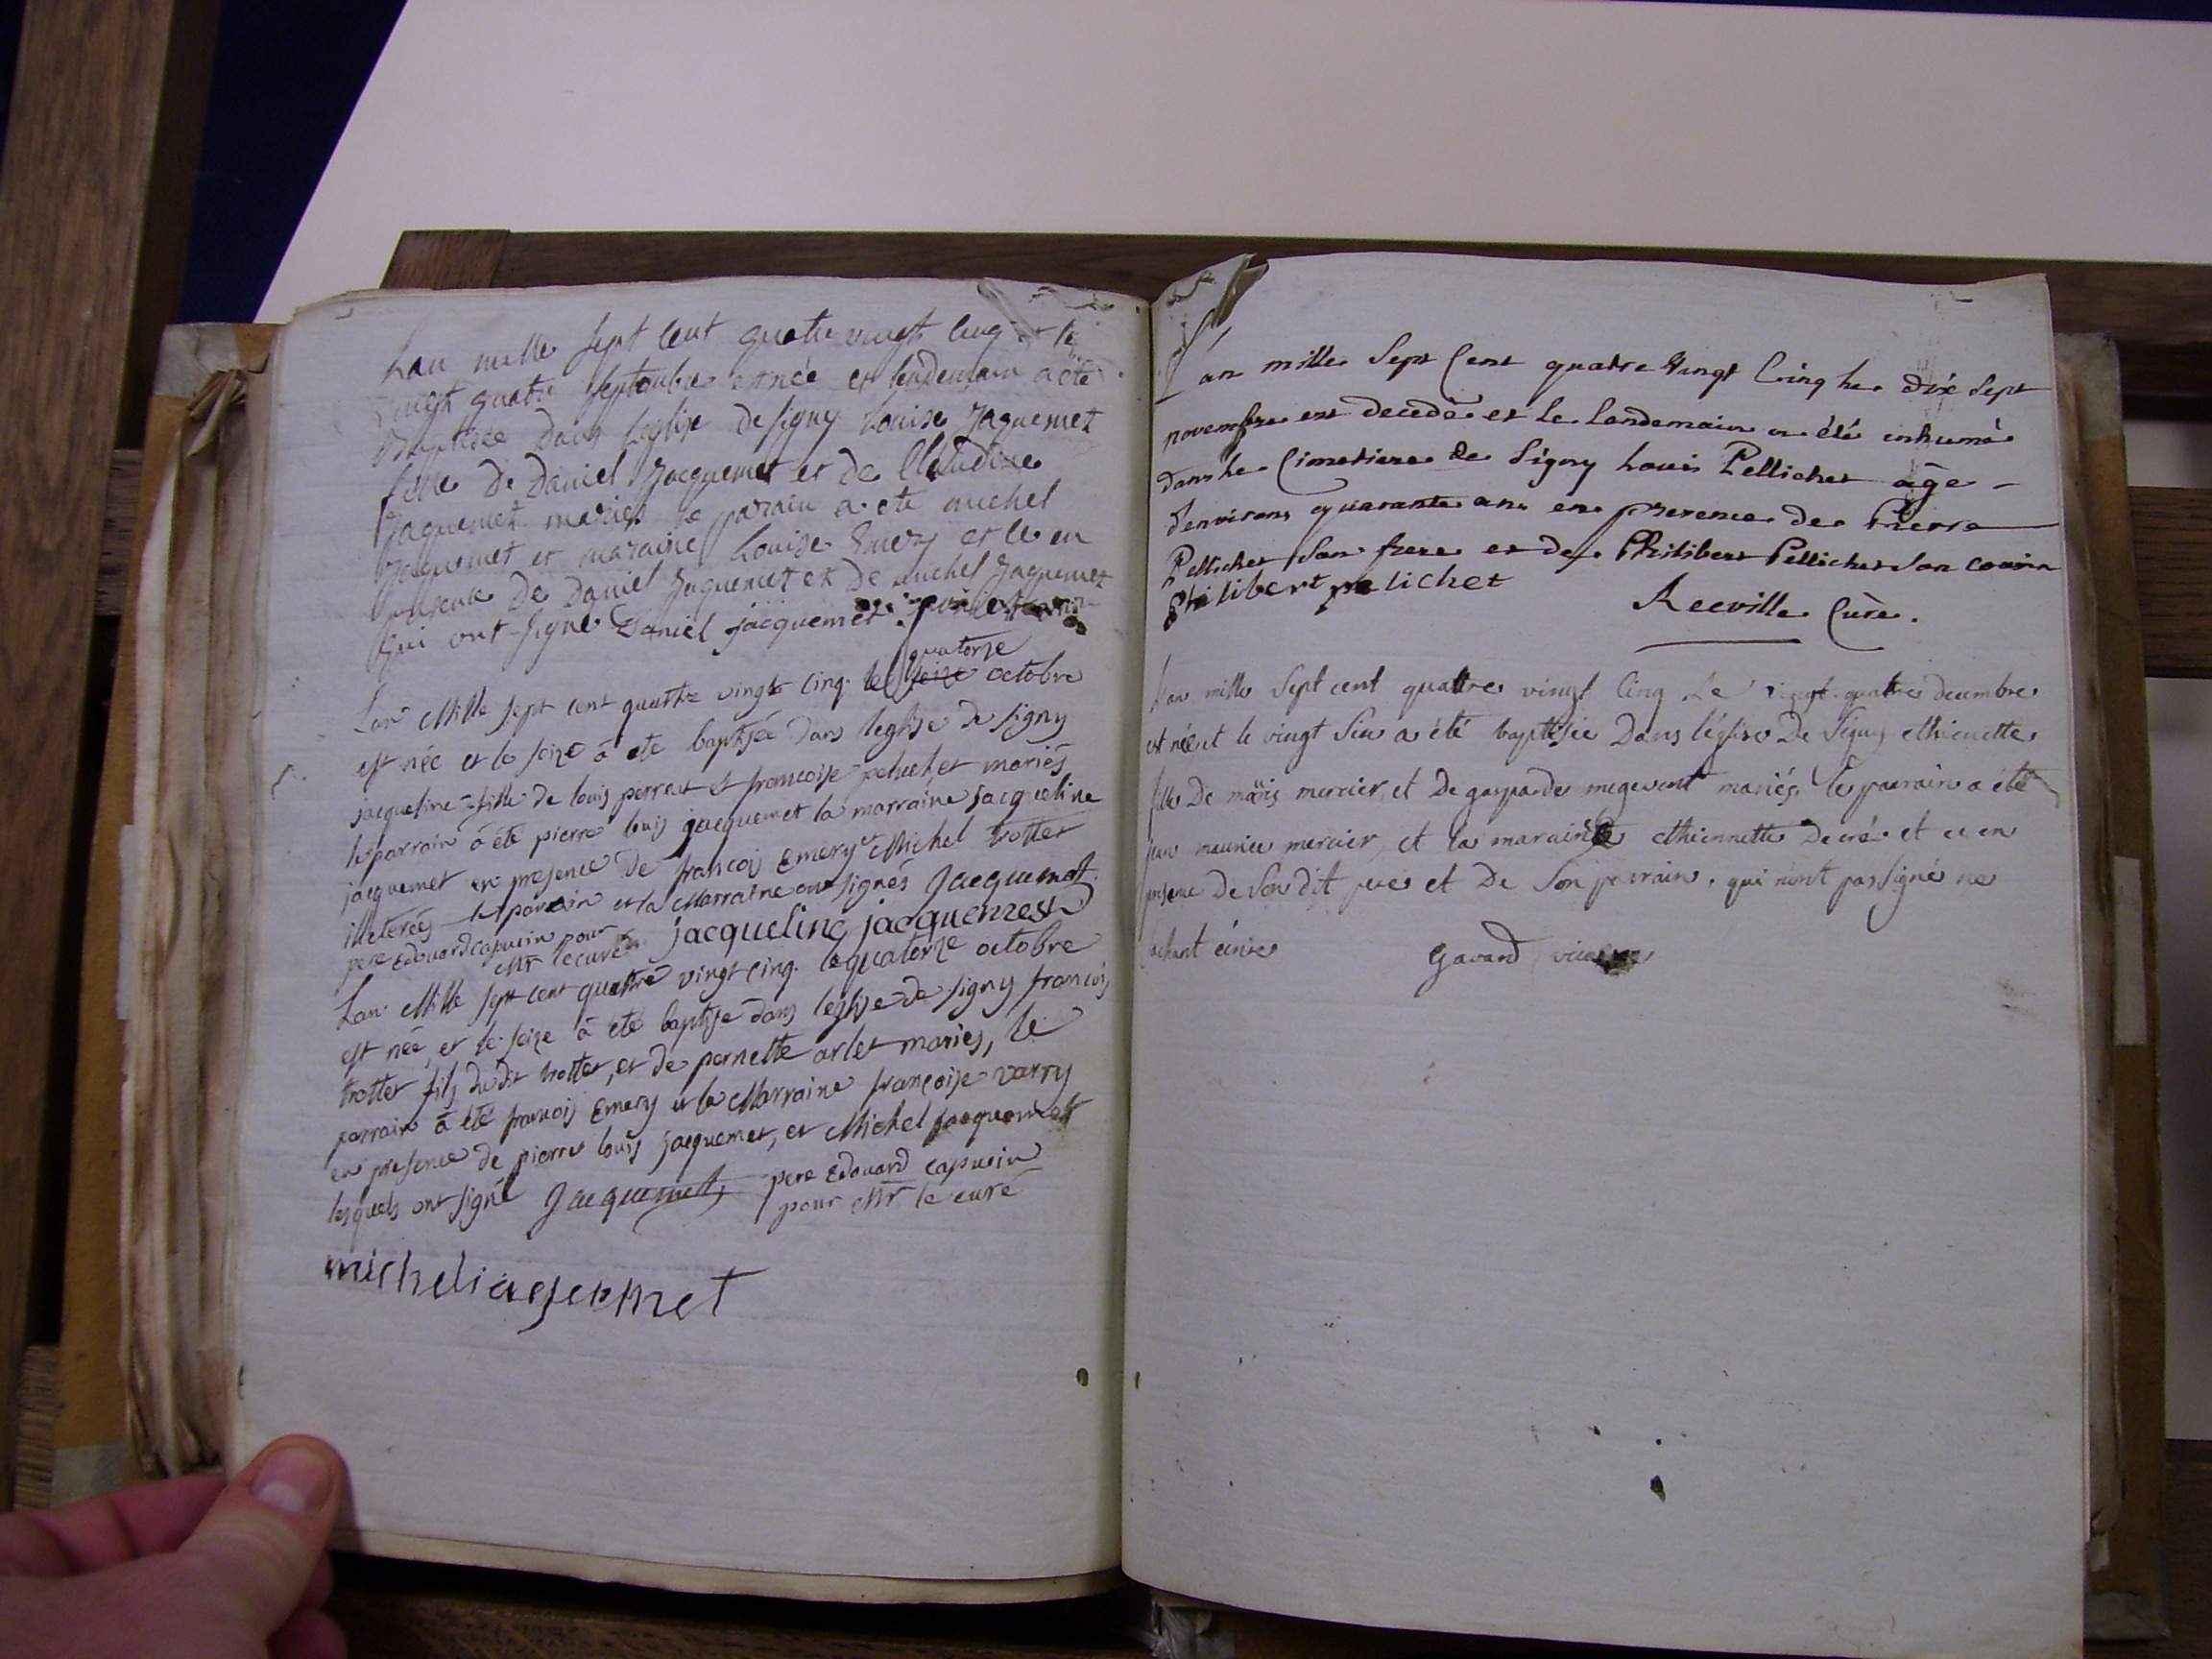 Lan mille sept cent quatre vingt cinq et le
vingt quatre septembre est née et lendemain a ete
Baptisée Dans leglise de signy Louise Jaquemet
fille De Daniel Jacquemet et de Claudine
Jaquemet mariés le parain a ete michel
Jaquemet et maraine Louise Emery et ce en
presence De Daniel Jaquemet et De michel Jaquemet
qui ont signé Daniel jacquemet
quatorze
Lan Mille sept cent quattre vingt cinq. le seize octobre
est née et le seize à ete baptisée dans leglise de signy
jacqueline fille de louis perreut et francoise pelichet mariés
le parrain à été pierre louis jacquemet la marraine jacqueline
jacquemet en presence de francois Emery et Michel trottet
illeterés le parrain et la Marraine ont signés Jacquemet
pere Edouard capucin pour
Mr le curé jacqueline jacquemet
Lan Mille sept cent quattre vingt cinq. le quatorze octobre
est née, et le seize à eté baptisé dans leglise de signy francois
trottet fils du dit trottet, et de pernette arlet mariés, le
parrain à été francois Emery et la Marraine françoise varry
en presence de pierre louis jacquemet, et Michel jacquemet
lesquels ont signé Jacquemet pere Edouard capucin
pour Mr le curé
michel iaqemet
L'an mille Sept Cent quatre Vingt Cinq le dix Sept
novembre est decedé et le Landemain a été inhumé
dans le Cimetiere de Signy Louis Pellichet agé
d'environs quarante ans en presence de Pierre
Pellichet Son frere et de Philibert Pellichet Son cousin
Philibert pelichet
Reeville Curé.
Lan mille Sept cent quattre vingt Cinq Le vingt quattre decembre
est née et le vingt Six a été baptisée Dans l'église De Signy ethienette
fille De mercier et De gasparde megevent mariés. le parrain a été
jean maurice mercier et la maraine ethiennette Decré et ce en
presence De Son dit pere et De Son parrain, qui n'ont pas Signé ne
sachant ecrire Gavard vicaire